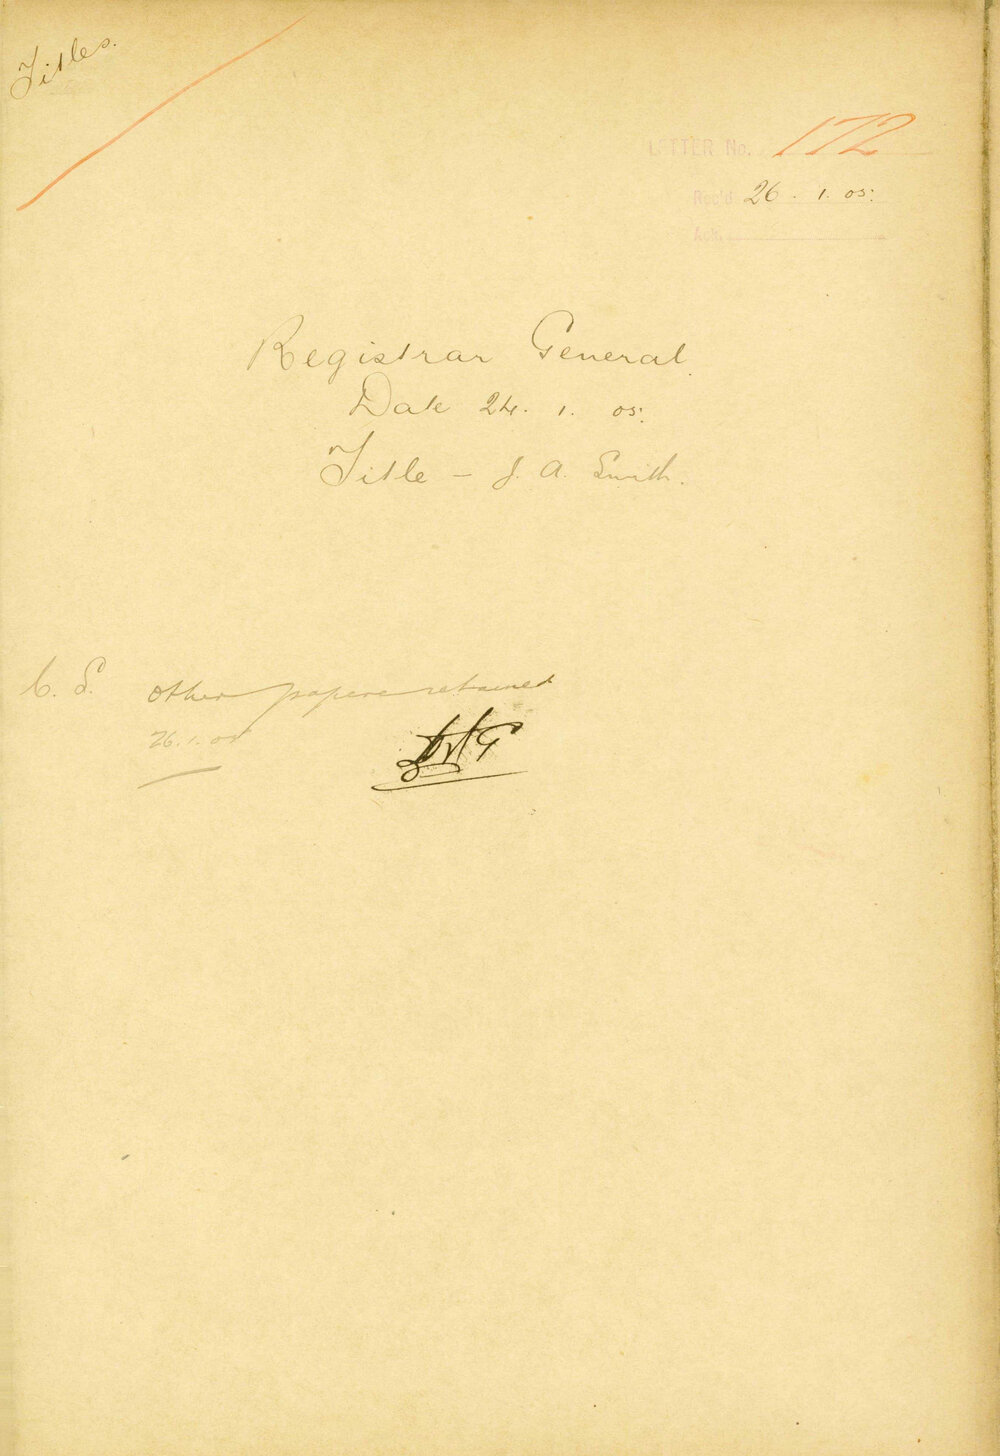 Titles.
LETTER No. 172
Rec'd 26. 1. 05.
Ack.
Registrar General.
Date 24. 1. 05.
Title – J. A. Smith.
C. S. other papers retained
26.1.05